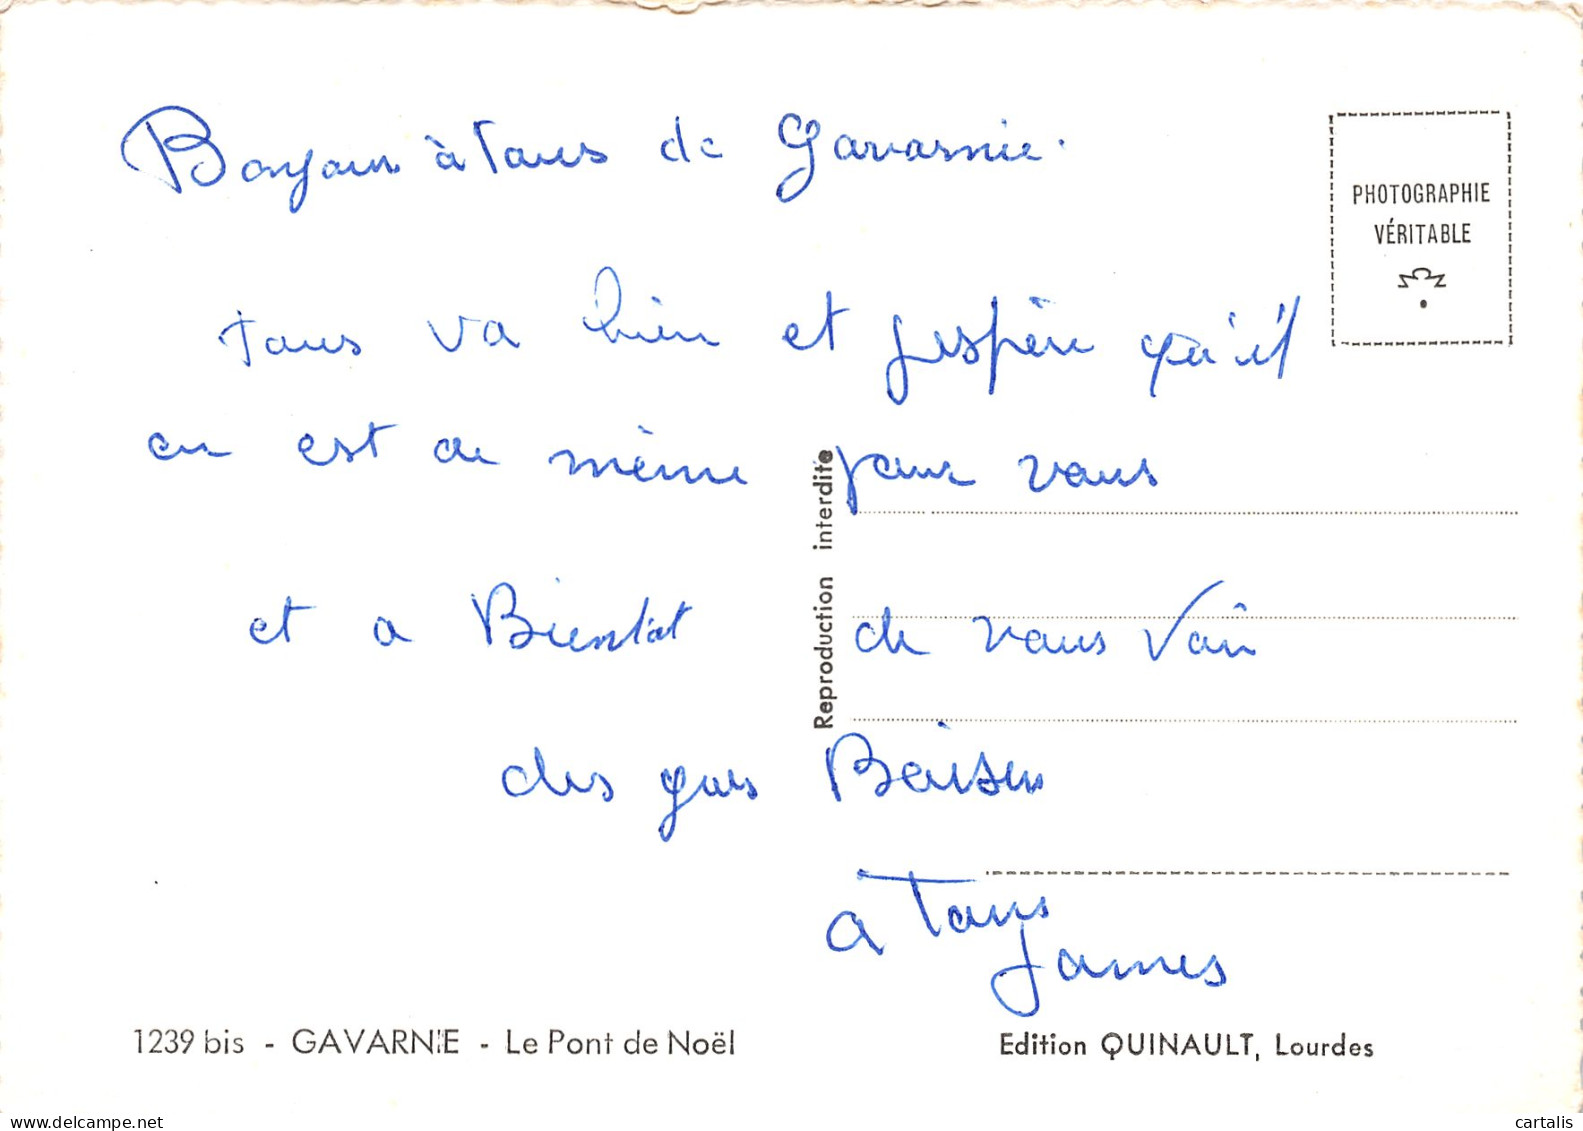 Bonjour à Tous de Gavarnie.
PHOTOGRAPHIE
VÉRITABLE
tous va bien et j'espère qu'il
en est de même pour vous
et a Bientôt de vous Voir
des gros Baisers
à Tous
James
Reproduction interdite
1239 bis - GAVARNIE - Le Pont de Noël
Edition QUINAULT, Lourdes
www.delcampe.net
cartalis